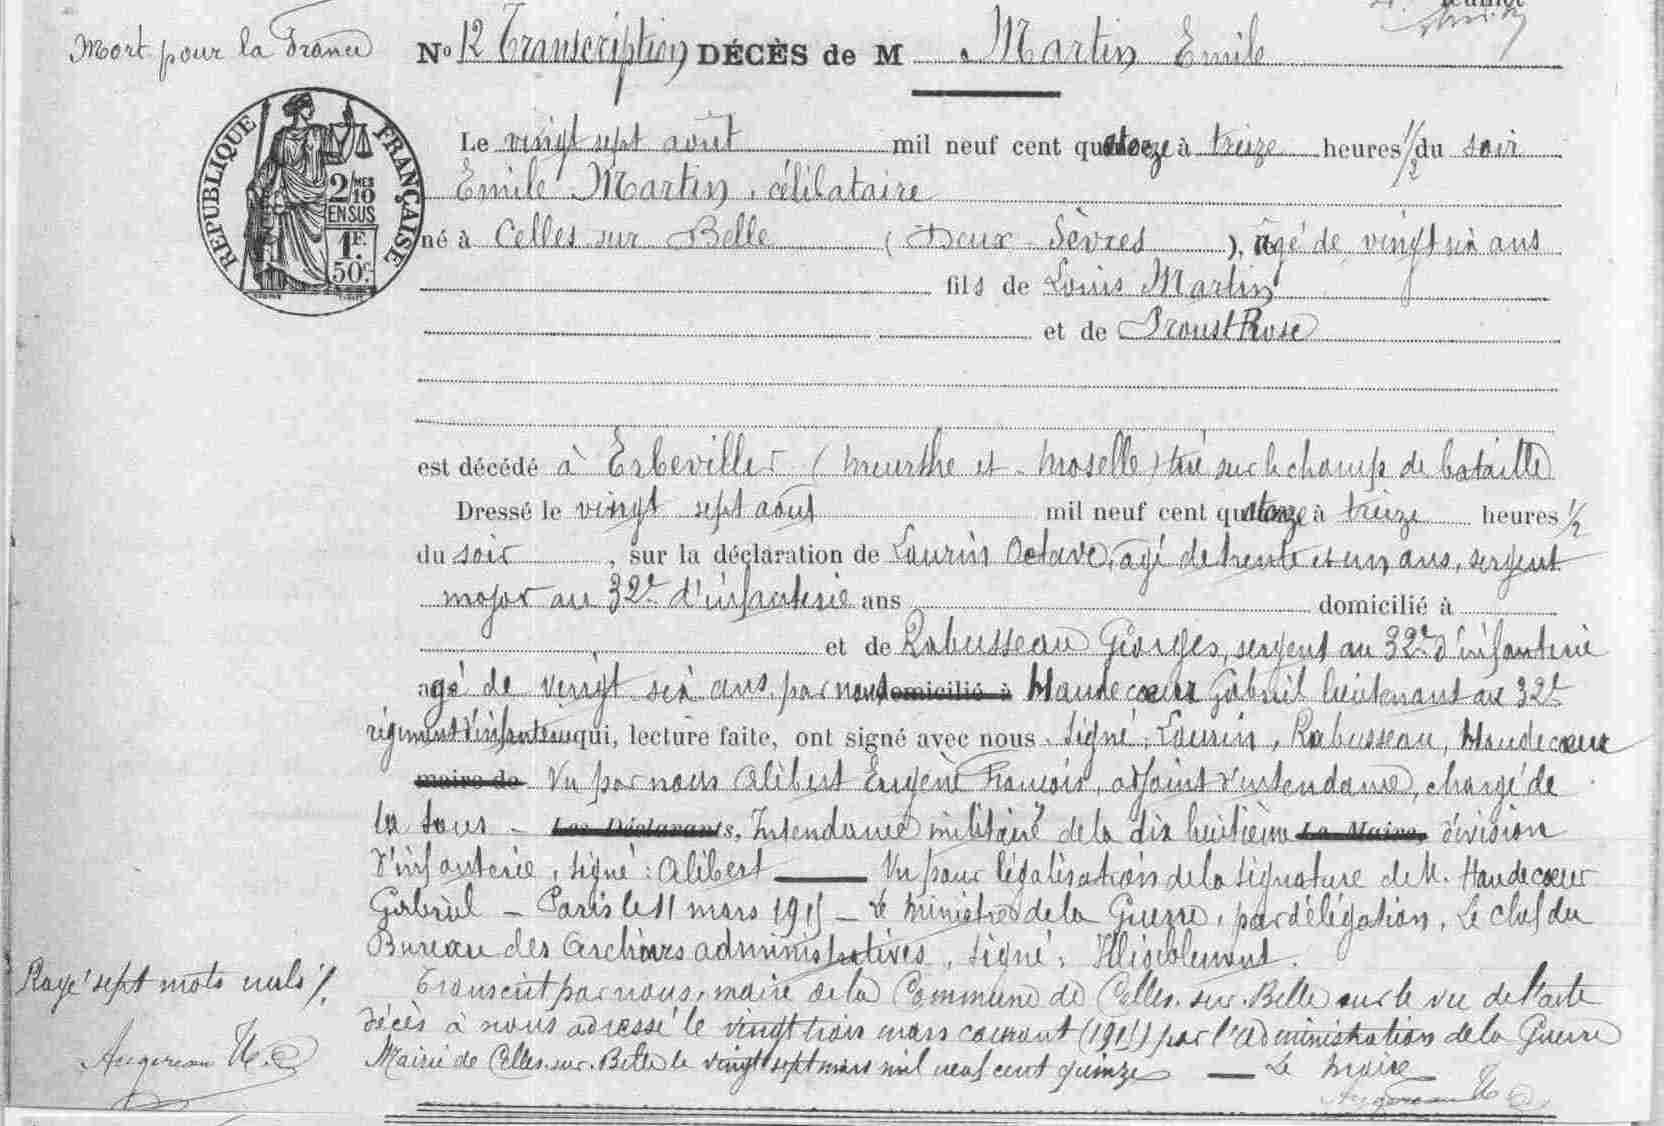 feuillet
Mort pour la France
No 12 Transcription DÉCÈS de M Martin Emile
RÉPUBLIQUE FRANÇAISE
2/10 MES
EN SUS
1F.
50c.
Le vingt sept août mil neuf cent quatorze à treize heures 1/2 du soir
Emile Martin, célibataire
né à Celles sur Belle (Deux-Sèvres), âgé de vingt six ans
fils de Louis Martin
et de Proust Rose
est décédé à Erbeviller (Meurthe et Moselle) tué sur le champ de bataille
Dressé le vingt sept août mil neuf cent quatorze à treize heures 1/2
du soir, sur la déclaration de Laurin Octave, agé de trente et un ans, sergent
major au 32e d'infanterie ans domicilié à
et de Rabusseau Georges, sergent au 32e d'infanterie
agé de vingt six ans, par nous domicilié à Haudecœur Gabriel lieutenant au 32e
régiment d'infanterie qui, lecture faite, ont signé avec nous. Signé, Laurin, Rabusseau, Haudecœur
maire de Vu par nous Alibert Eugène François, adjoint d'intendance, chargé de
la sous - Les Déclarants, Intendance militaire de la dix huitième Le Maire, division
d'infanterie, signé : Alibert — Vu pour légalisation de la signature de M. Haudecœur
Gabriel - Paris le 11 mars 1915 - Le Ministre de la Guerre, par délégation, Le chef du
Bureau des Archives administratives, signé, Illisiblement.
Transcrit par nous, maire de la Commune de Celles-sur-Belle sur le vu de l'acte
décès à nous adressé le vingt trois mars courant (1915) par l'Administration de la Guerre
Mairie de Celles-sur-Belle le vingt sept mars mil neuf cent quinze — Le Maire
Rayé sept mots nuls